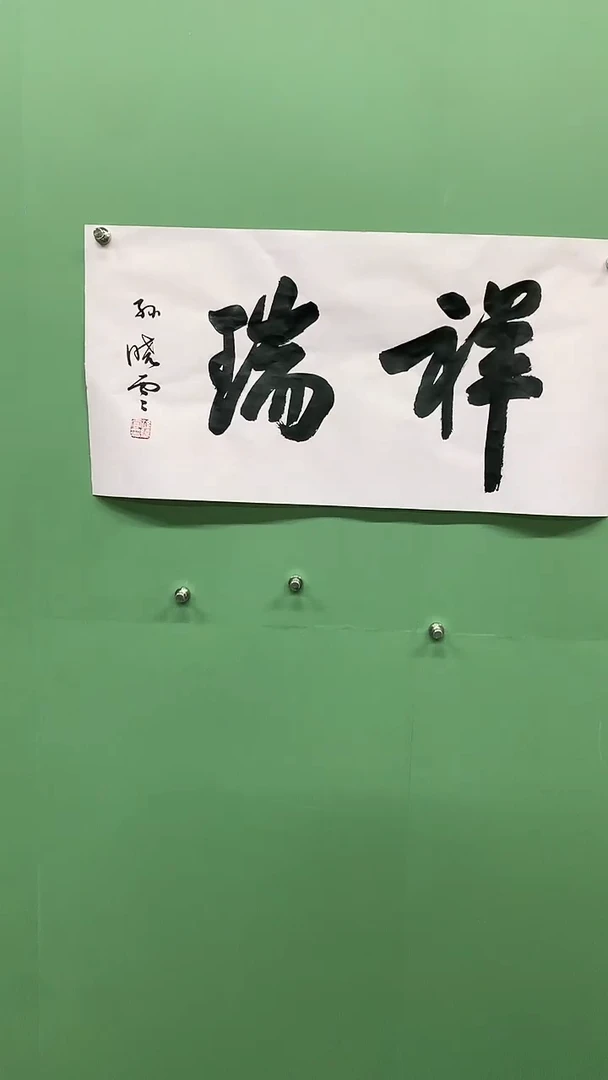 祥瑞
孙晓云